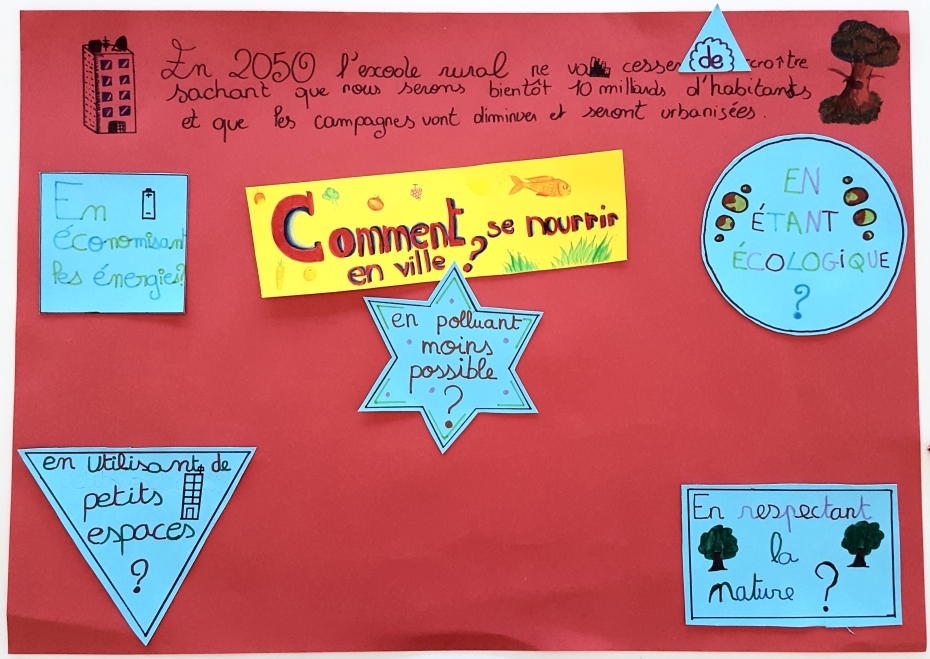 En 2050 l'exode rural ne va cesser de croître
sachant que nous serons bientôt 10 milliards d'habitants
et que les campagnes vont diminuer et seront urbanisées.
En
économisant
les énergies?
Comment se nourrir
en ville ?
EN
ÉTANT
ÉCOLOGIQUE
?
en polluant
moins
possible
?
en utilisant de
petits
espaces
?
En respectant
la
nature ?